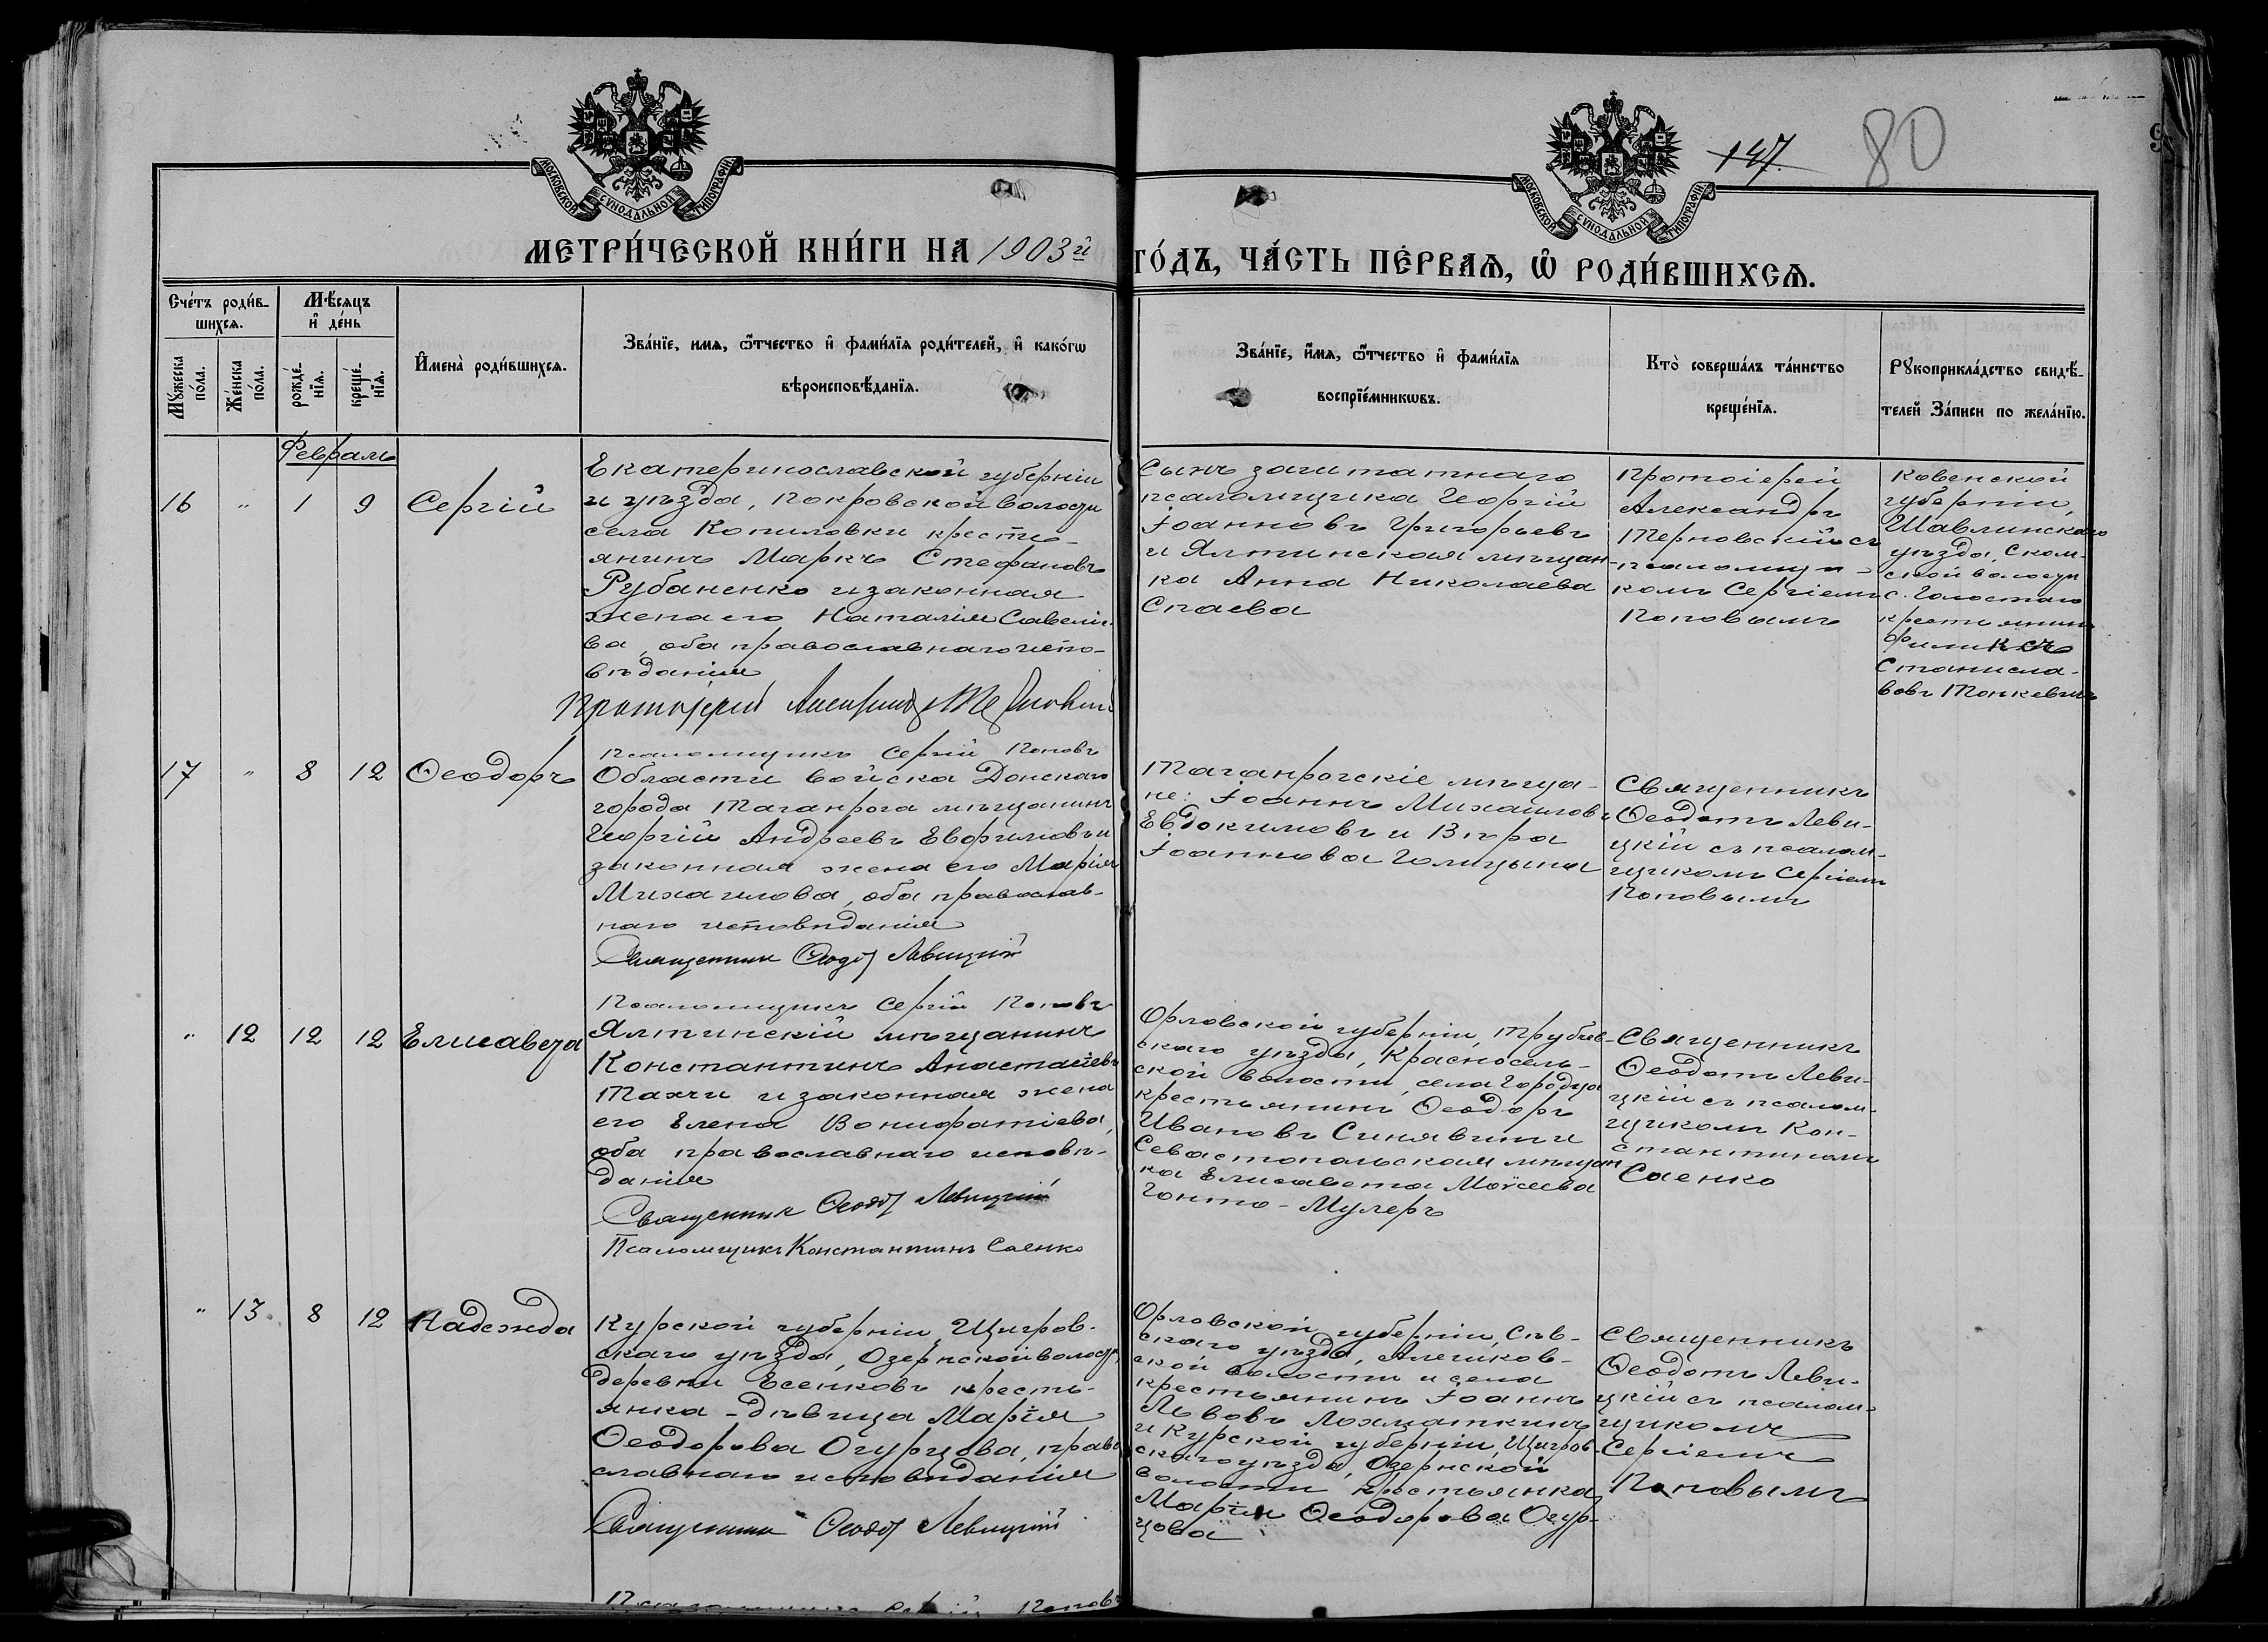 МОСКОВСКОЙ СУНОДАЛЬНОЙ ТИПОГРАФІИ
МОСКОВСКОЙ СУНОДАЛЬНОЙ ТИПОГРАФІИ
147
80
МЕТРИ́ЧЕСКОЙ КНИ́ГИ НА 1903й ГО́ДЪ, ЧА́СТЬ ПЕ́РВАѦ, Ѽ РОДИ́ВШИХСѦ.
Сче́тъ роди́в-
шихсѧ.
Мѣ́сѧцъ
и҆ де́нь
Мꙋ́жеска по́ла.
Же́нска по́ла.
рожде́-
нїѧ.
креще́-
нїѧ.
И҆мена̀ роди́вшихсѧ.
Зва́нїе, имѧ, ѻ҆́тчество и҆ фами́лїѧ роди́телей, и҆ како́гѡ
вѣроисповѣ́данїѧ.
Зва́нїе, и҆́мѧ, ѻ҆́тчество и҆ фами́лїѧ
воспрїе́мникѡвъ.
Кто̀ соверша́лъ та́инство
креще́нїѧ.
Рꙋкоприкла́дство свидѣ́-
телей За́писи по жела́нїю.
Февраль
16 " 1 9 Сергій
Екатеринославской губерніи
и уѣзда, Покровской волости
села Копиловки кресть-
янинъ Маркъ Стефановъ
Рубаненко и законная
жена его Наталія Савелье-
ва, оба православнаго испо-
вѣданія
Протоіерей Александръ Терновскій
Псаломщикъ Сергій Поповъ
Сынъ заштатнаго
псаломщика Георгій
Іоанновъ Григорьевъ
и Ялтинская мѣщан-
ка Анна Николаева
Спаева
Протоіерей
Александръ
Терновскій съ
псаломщи-
комъ Сергіемъ
Поповымъ
Ковенской
губерніи,
Шавлинскаго
уѣзда,
ской волости
с.
крестьянинъ
Феликсъ
Станисла-
вовъ Монкевичъ
17 " 8 12 Ѳеодоръ
Области войска Донскаго
города Таганрога мѣщанинъ
Георгій Андреевъ Ефримовъ и
законная жена его Марія
Михаилова, оба православ-
наго исповѣданія
Священникъ Ѳеодотъ Левицкій
Псаломщикъ Сергій Поповъ
Таганрогскіе мѣща-
не: Іоаннъ Михаиловъ
Евдокимовъ и Вѣра
Іоаннова Голицына
Священникъ
Ѳеодотъ Леви-
цкій съ псалом-
щикомъ Сергіемъ
Поповымъ
" 12 12 12 Елисавета
Ялтинскій мѣщанинъ
Константинъ Анастасіевъ
Тахчи и законная жена
его Елена Вонифатіева,
оба православнаго исповѣ-
данія
Священникъ Ѳеодотъ Левицкій
Псаломщикъ Константинъ Саенко
Орловской губерніи, Трубчев-
скаго уѣзда, Красносель-
ской волости, села Городца
крестьянинъ Ѳеодоръ
Ивановъ Синявин и
Севастопольская мѣщан
ка Елисавета Моѵсеева
Гонто-Мулеръ
Священникъ
Ѳеодотъ Леви-
цкій съ псалом-
щикомъ Кон-
стантиномъ
Саенко
" 13 8 12 Надежда
Курской губерніи, Щигров-
скаго уѣзда, Озернской волости
деревни Есенковъ кресть-
янка-дѣвица Марія
Ѳеодорова Огурцова, право
славнаго исповѣданія
Священникъ Ѳеодотъ Левицкій
Псаломщикъ Сергій Поповъ
Орловской губерніи, Сѣв-
скаго уѣзда, Алешков-
ской волости и села
крестьянинъ Іоаннъ
Львовъ Лохматкинъ
и Курской губерніи, Щигров-
скаго уѣзда, Озернской
волости крестьянка
Марія Ѳеодорова Огур-
цова
Священникъ
Ѳеодотъ Леви-
цкій съ псалом-
щикомъ
Сергіемъ
Поповымъ